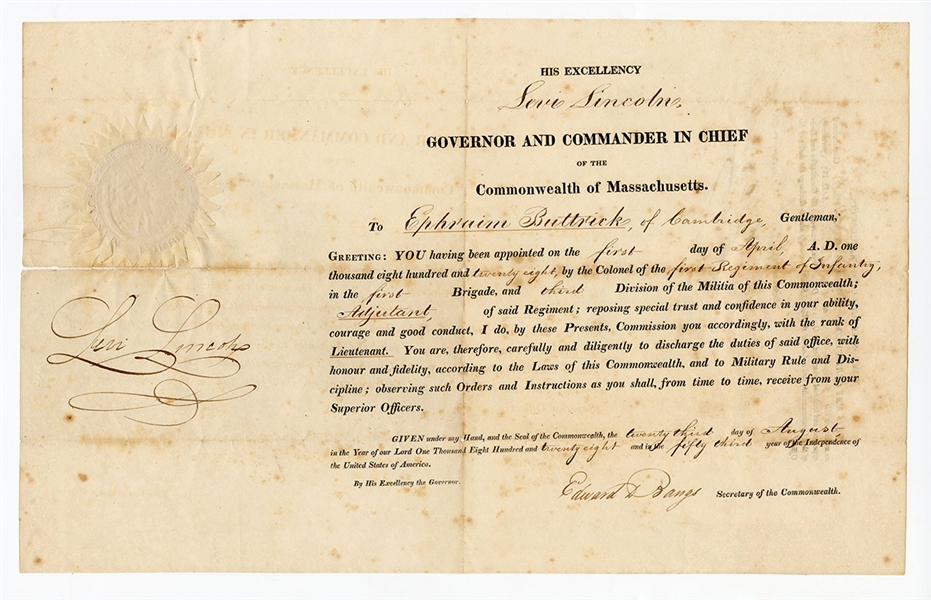 HIS EXCELLENCY
Levi Lincoln,
GOVERNOR AND COMMANDER IN CHIEF
OF THE
Commonwealth of Massachusetts.
To Ephraim Buttrick, of Cambridge, Gentleman,
GREETING: YOU having been appointed on the first day of April, A. D. one
thousand eight hundred and twenty eight, by the Colonel of the first Regiment of Infantry,
in the first Brigade, and third Division of the Militia of this Commonwealth;
Adjutant, of said Regiment; reposing special trust and confidence in your ability,
courage and good conduct, I do, by these Presents, Commission you accordingly, with the rank of
Lieutenant. You are, therefore, carefully and diligently to discharge the duties of said office, with
honour and fidelity, according to the Laws of this Commonwealth, and to Military Rule and Dis-
cipline; observing such Orders and Instructions as you shall, from time to time, receive from your
Superior Officers.
Levi Lincoln
GIVEN under my Hand, and the Seal of the Commonwealth, the twenty third day of August,
in the Year of our Lord One Thousand Eight Hundred and twenty eight and in the fifty third year of the Independence of
the United States of America.
By His Excellency the Governor.
Edward D Bangs Secretary of the Commonwealth.